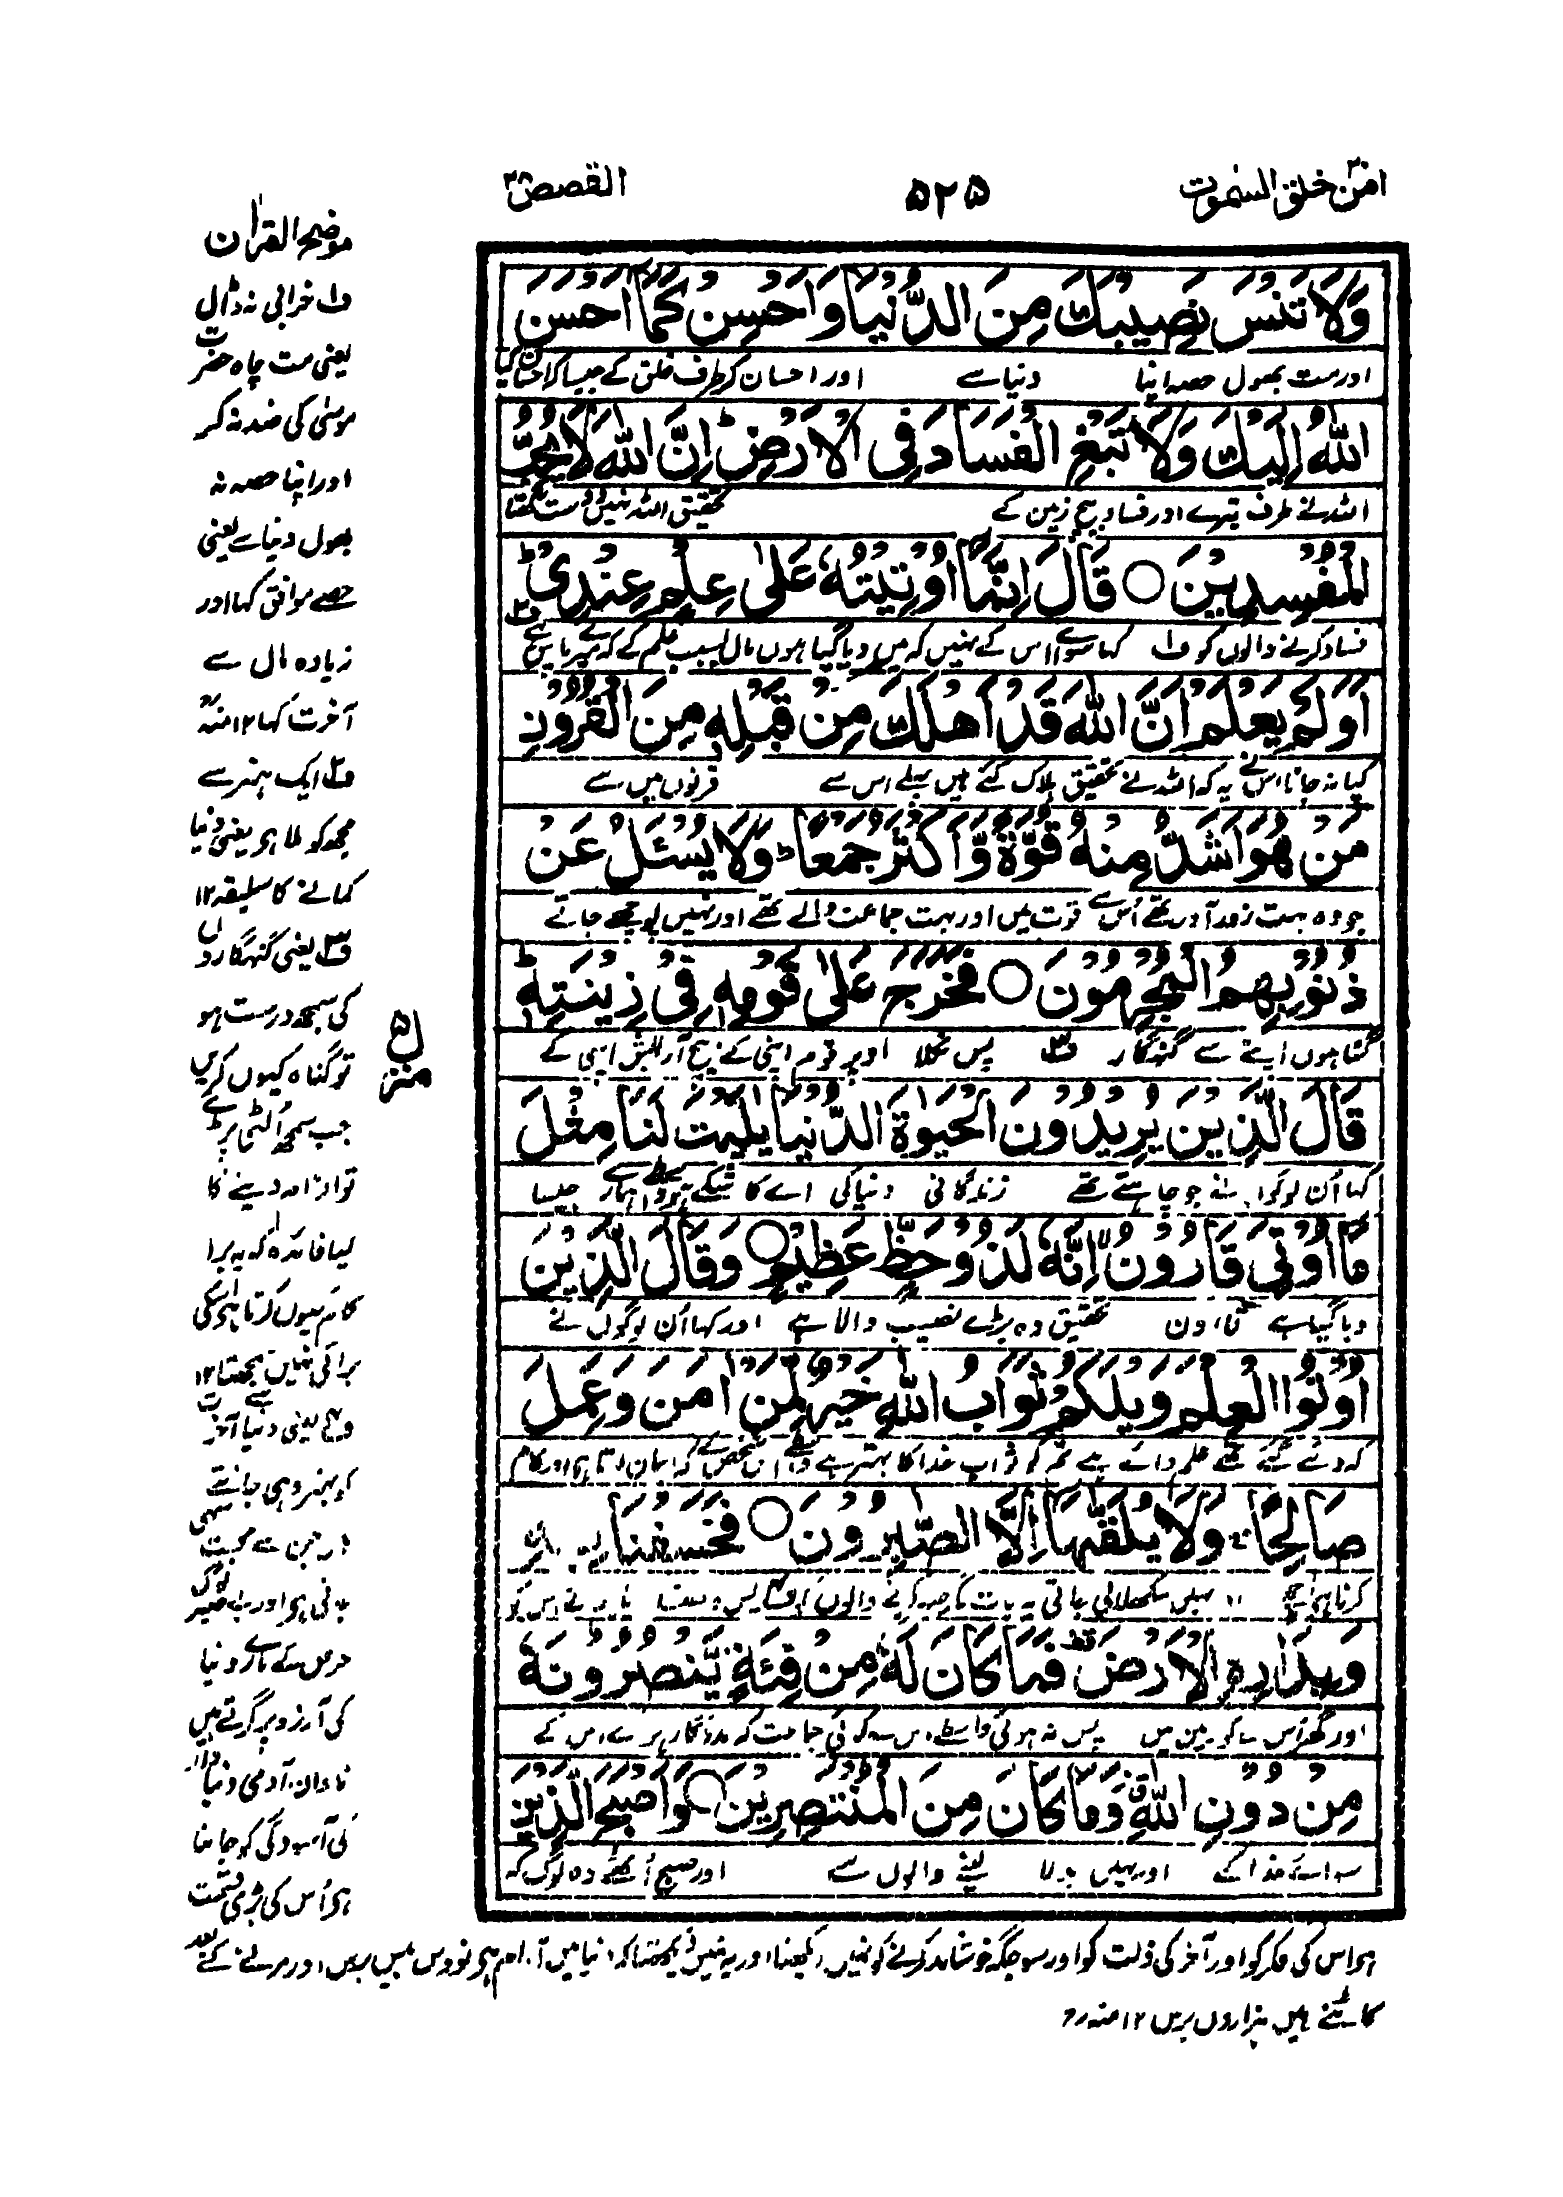 امن خلق السموت ٢٠
۵۲۵
القصص ٢٨
وَلَا تَنْسَ نَصِيبَكَ مِنَ الدُّنْيَا وَأَحْسِنْ كَمَا أَحْسَنَ
اور مت بھول حصہ اپنا دنیا سے اور احسان کر طرف خلق کے جیسا کہ احسان کیا
اللّٰهُ إِلَيْكَ وَلَا تَبْغِ الْفَسَادَ فِي الْأَرْضِ ط إِنَّ اللّٰهَ لَا يُحِبُّ
اللہ نے طرف تیرے اور فساد بیچ زمین کے تحقیق اللہ نہیں دوست رکھتا
الْمُفْسِدِينَ ○ قَالَ إِنَّمَا أُوتِيتُهُ عَلٰى عِلْمٍ عِنْدِي ط
فساد کرنے والوں کو ف۱ کہا سوائے اس کے نہیں کہ میں دیا گیا ہوں مال بسبب علم کے کہ میرے پاس ہے ف۲
أَوَلَمْ يَعْلَمْ أَنَّ اللّٰهَ قَدْ أَهْلَكَ مِنْ قَبْلِهٖ مِنَ الْقُرُونِ
کیا نہ جانا اس نے یہ کہ اللہ نے تحقیق ہلاک کئے ہیں پہلے اس سے قرنوں میں سے
مَنْ هُوَ أَشَدُّ مِنْهُ قُوَّةً وَّأَكْثَرُ جَمْعًا ط وَلَا يُسْئَلُ عَنْ
جو وہ بہت زور آور تھے اُس سے قوت میں اور بہت جماعت والے تھے اور نہیں پوچھے جاتے
ذُنُوبِهِمُ الْمُجْرِمُونَ ○ فَخَرَجَ عَلٰى قَوْمِهٖ فِي زِينَتِهٖ ط
گناہوں اپنے سے گنہگار ف۳ پس نکلا اوپر قوم اپنی کے بیچ آرائش اپنی کے
قَالَ الَّذِينَ يُرِيدُونَ الْحَيٰوةَ الدُّنْيَا يٰلَيْتَ لَنَا مِثْلَ
کہا اُن لوگوں نے جو چاہتے تھے زندگانی دنیا کی اے کاشکے ہووے واسطے ہمارے جیسا
مَا أُوتِيَ قَارُونُ إِنَّهُ لَذُو حَظٍّ عَظِيمٍ ○ وَقَالَ الَّذِينَ
دیا گیا ہے قارون تحقیق وہ بڑے نصیب والا ہے اور کہا اُن لوگوں نے
أُوتُوا الْعِلْمَ وَيْلَكُمْ ثَوَابُ اللّٰهِ خَيْرٌ لِّمَنْ اٰمَنَ وَعَمِلَ
کہ دئے گئے تھے علم وائے ہے تم کو ثواب خدا کا بہتر ہے واسطے اس شخص کے کہ ایمان لاتا ہے اور کام
صَالِحًا ج وَلَا يُلَقّٰهَا إِلَّا الصّٰبِرُونَ ○ فَخَسَفْنَا بِهٖ
کرتا ہے اچھے نہیں سکھلائی جاتی یہ بات مگر صبر کرنے والوں کو پس دھنسا دیا ہم نے اس کو
وَبِدَارِهِ الْأَرْضَ قف فَمَا كَانَ لَهٗ مِنْ فِئَةٍ يَّنْصُرُونَهٗ
اور گھر اُس کے کو زمین میں پس نہ ہوئی واسطے اس کے کوئی جماعت کہ مددگار ہوے اس کے
مِنْ دُونِ اللّٰهِ ق وَمَا كَانَ مِنَ الْمُنْتَصِرِينَ ○ وَأَصْبَحَ الَّذِينَ
سوائے خدا کے اور نہیں بدلا لینے والوں سے اور صبح اُٹھے وہ لوگ کہ
موضح القرآن
ف۱ خرابی نہ ڈال
یعنی مت چاہ حضرت
موسیٰ کی ضد نہ کر
اور اپنا حصہ نہ
بھول دنیا سے یعنی
حصے موافق کھا اور
زیادہ مال سے
آخرت کما ۱۲ منہ
ف۲ ایک ہنر سے
مجھ کو ملا ہے یعنی دنیا
کمانے کا سلیقہ ۱۲
ف۳ یعنی گنہگاروں
کی سمجھ درست ہو
تو گناہ کیوں کریں
جب سمجھ اُلٹی پڑے
تو الزام دینے کا
کیا فائدہ کہ یہ برا
کام کیوں کرتا ہے اسکی
برائی نہیں سمجھتا ۱۲
ف۴ یعنی دنیا آخرت
کو بہتر وہی جانتے ہیں
جن سے محنت سہی
جاتی ہے اور بے صبر لوگ
حرص کے مارے دنیا
کی آرزو پر گرتے ہیں
نادان آدمی دنیا دار
کی آسودگی کو جانتا
ہے اُس کی بڑی قسمت
منزل ۵
ہے اس کی فکر کو اور آخر کی ذلت کو اور سو جگہ خوشامد کرنے کو نہیں دیکھتا اور یہ نہیں دیکھتا کہ دنیا میں آرام ہے تو دس بیس برس اور مرنے کے بعد
کاٹنے ہیں ہزاروں برس ۱۲ منہ رح